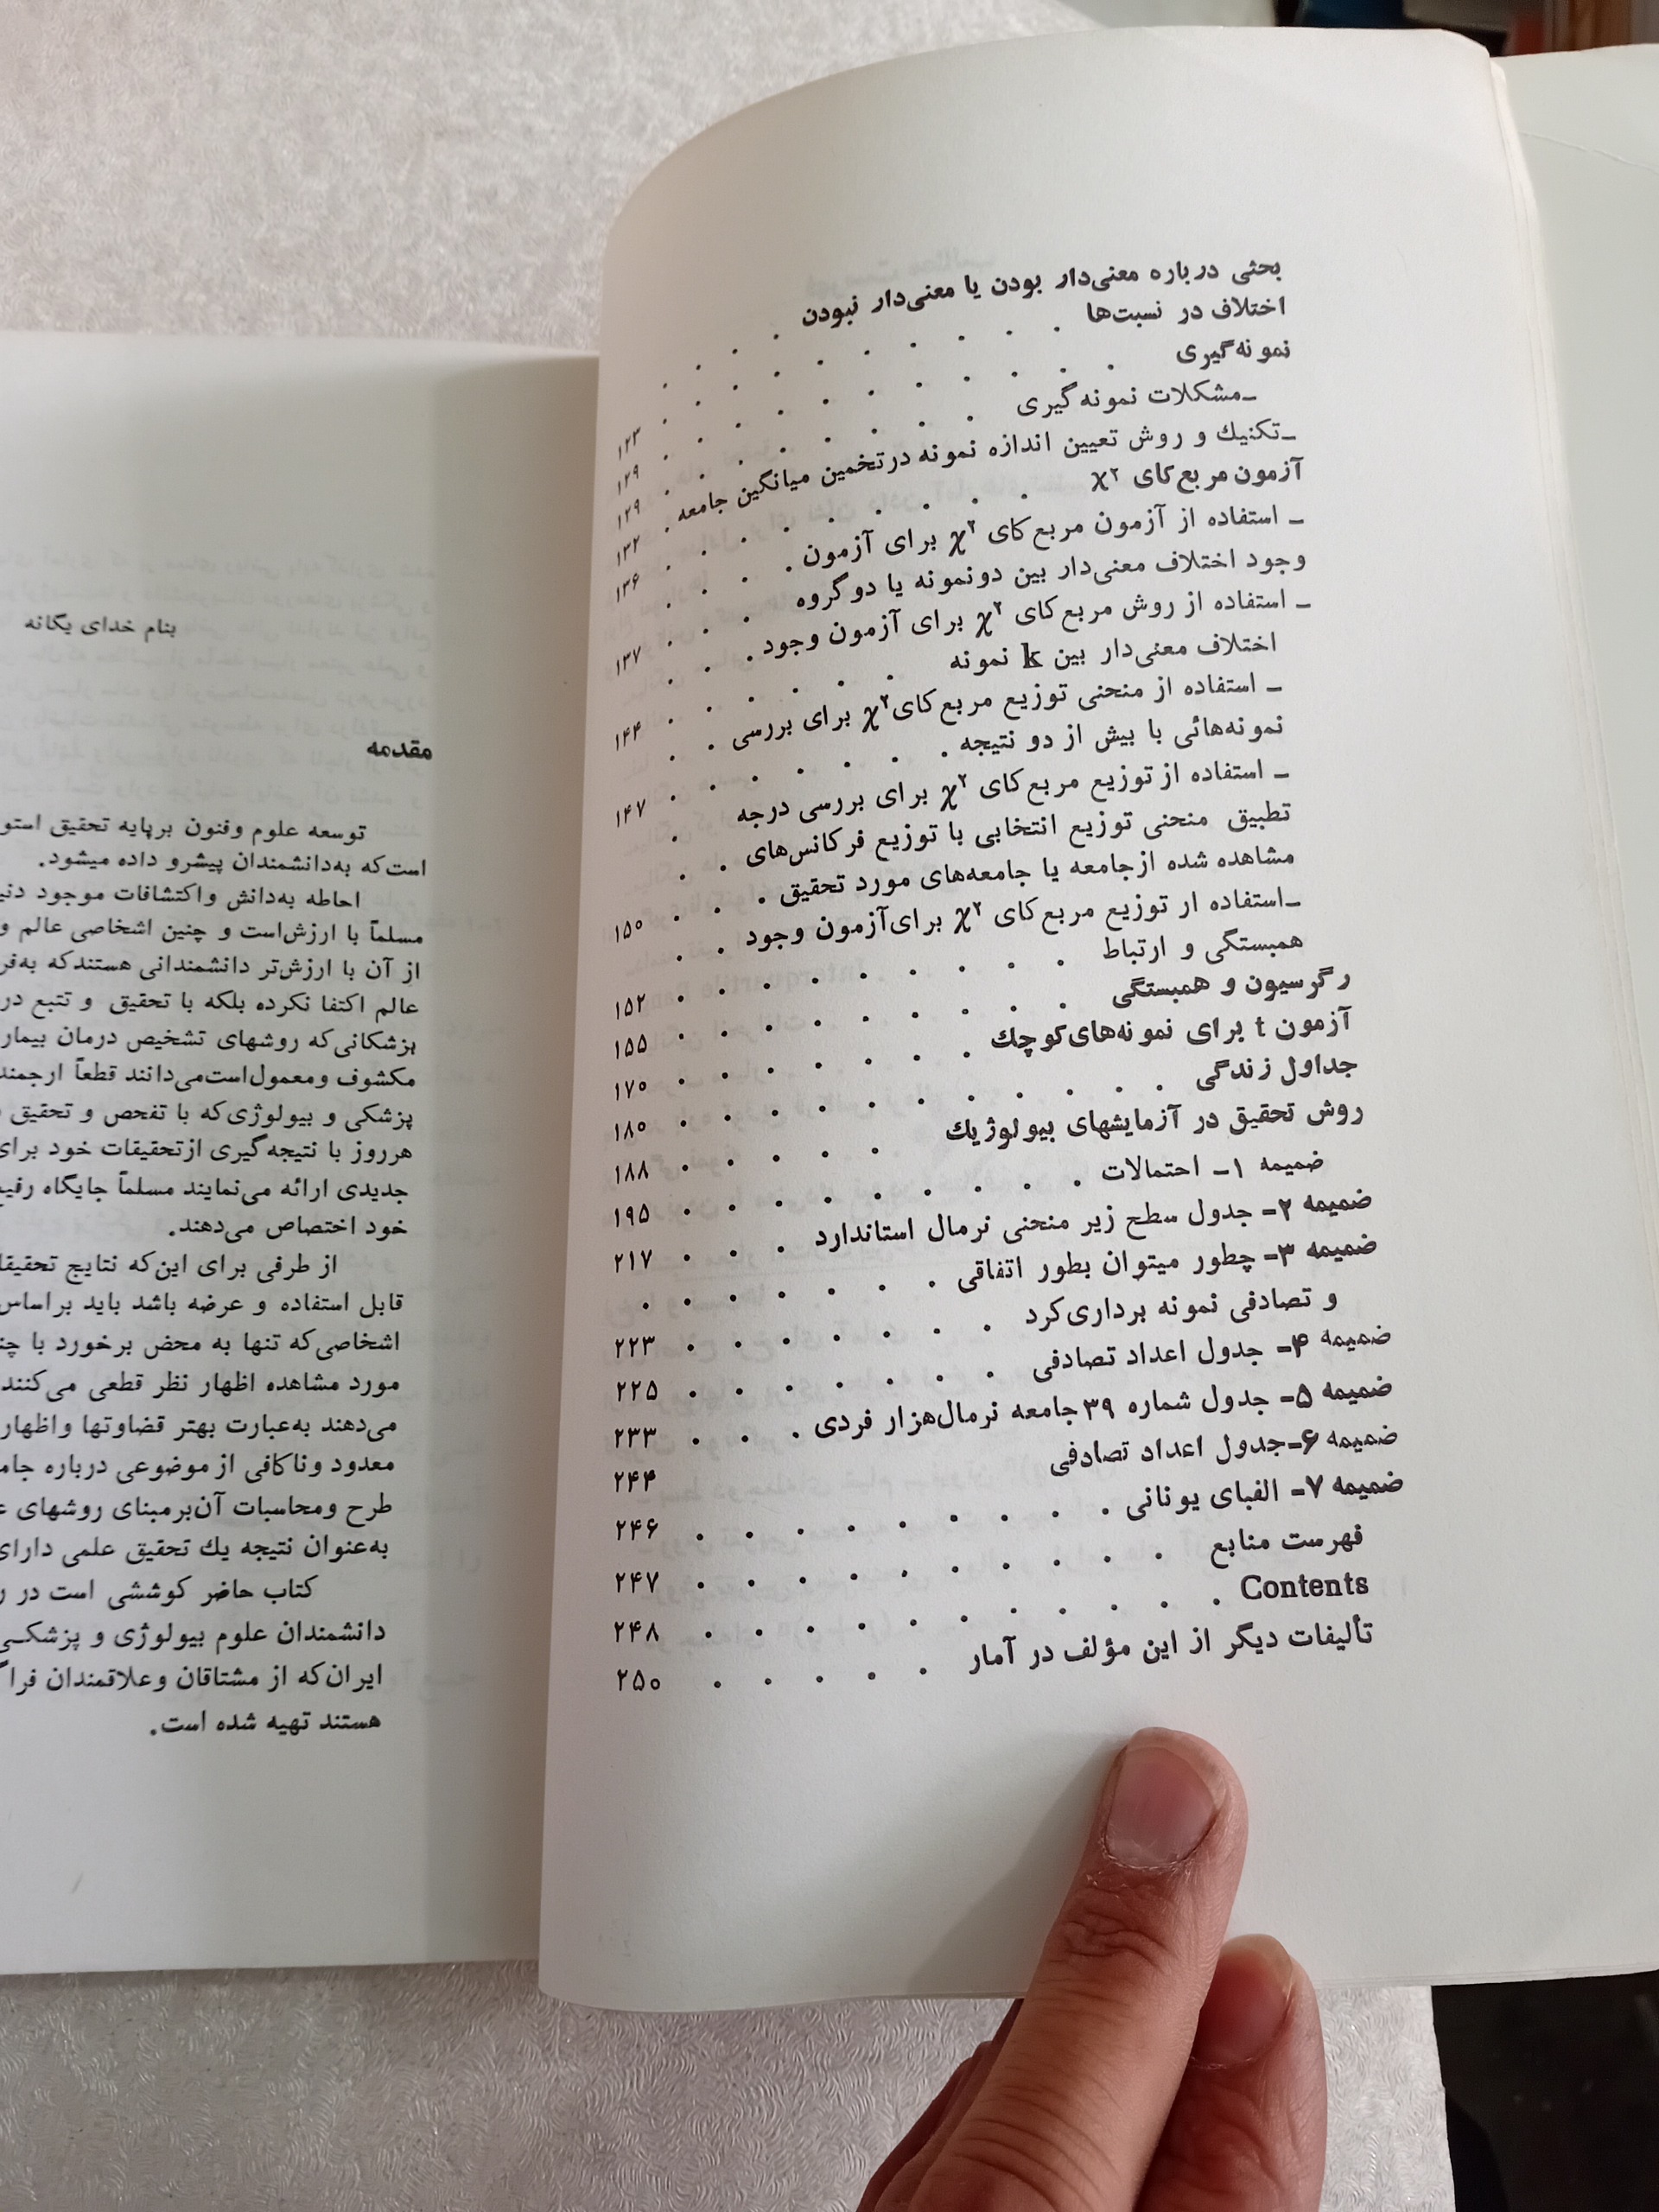 بحثی درباره معنی‌دار بودن یا معنی‌دار نبودن
اختلاف در نسبت‌ها . . . . . . . . ۱۲۳
نمونه‌گیری . . . . . . . . . ۱۲۹
ـ‌مشکلات نمونه‌گیری . . . . . . . ۱۲۹
ـ‌تکنیك و روش تعیین اندازه نمونه درتخمین میانگین جامعه . ۱۳۲
آزمون مربع‌کای χ۲ . . . . . . . . ۱۳۶
ـ استفاده از آزمون مربع‌کای χ۲ برای آزمون . . .
وجود اختلاف معنی‌دار بین دونمونه یا دوگروه . . . ۱۳۷
ـ استفاده از روش مربع‌کای χ۲ برای آزمون وجود . . .
اختلاف معنی‌دار بین k نمونه . . . . . . ۱۴۴
ـ استفاده از منحنی توزیع مربع‌کای‌χ۲ برای بررسی . .
نمونه‌هائی با بیش از دو نتیجه . . . . . . ۱۴۷
ـ استفاده از توزیع مربع‌کای χ۲ برای بررسی درجه .
تطبیق منحنی توزیع انتخابی با توزیع فرکانس‌های . .
مشاهده شده ازجامعه یا جامعه‌های مورد تحقیق . . . ۱۵۰
ـ‌استفاده ار توزیع مربع‌کای χ۲ برای‌آزمون وجود . .
همبستگی و ارتباط . . . . . . . . ۱۵۲
رگرسیون و همبستگی . . . . . . . . ۱۵۵
آزمون t برای نمونه‌های‌کوچك . . . . . . ۱۷۰
جداول زندگی . . . . . . . . . . ۱۸۰
روش تحقیق در آزمایشهای بیولوژیك . . . . . ۱۸۸
ضمیمه ۱ـ احتمالات . . . . . . . . ۱۹۵
ضمیمه ۲ـ جدول سطح زیر منحنی نرمال استاندارد . . . ۲۱۷
ضمیمه ۳ـ چطور میتوان بطور اتفاقی . . . . . . .
و تصادفی نمونه برداری‌کرد . . . . . . . ۲۲۳
ضمیمه ۴ـ جدول اعداد تصادفی . . . . . . . ۲۲۵
ضمیمه ۵ـ جدول شماره ۳۹جامعه نرمال‌هزار فردی . . . ۲۳۳
ضمیمه ۶ـ‌جدول اعداد تصادفی ۲۴۴
ضمیمه ۷ـ الفبای یونانی . . . . . . . . . ۲۴۶
فهرست منابع . . . . . . . . . . ۲۴۷
Contents . . . . . . . . . . . ۲۴۸
تألیفات دیگر از این مؤلف در آمار . . . . . ۲۵۰
بنام خدای یگانه
مقدمه
توسعه علوم وفنون برپایه تحقیق
است‌که به‌دانشمندان پیشرو داده میشود.
احاطه به‌دانش واکتشافات موجود
مسلماً با ارزش‌است و چنین اشخاصی عالم و
از آن با ارزش‌تر دانشمندانی هستندکه
عالم اکتفا نکرده بلکه با تحقیق و تتبع در
پزشکانی‌که روشهای تشخیص درمان
مکشوف ومعمول‌است‌می‌دانند قطعاً
پزشکی و بیولوژی‌که با تفحص و تحقیق
هرروز با نتیجه‌گیری ازتحقیقات خود برای
جدیدی ارائه می‌نمایند مسلماً جایگاه
خود اختصاص می‌دهند.
از طرفی برای این‌که نتایج
قابل استفاده و عرضه باشد باید براساس
اشخاصی‌که تنها به محض برخورد با
مورد مشاهده اظهار نظر قطعی می‌کنند
می‌دهند به‌عبارت بهتر قضاوتها واظهار
معدود وناکافی از موضوعی درباره
طرح ومحاسبات آن‌برمبنای روشهای
به‌عنوان نتیجه یك تحقیق علمی دارای
کتاب حاضر کوششی است در
دانشمندان علوم بیولوژی و پزشکی
ایران‌که از مشتاقان وعلاقمندان
هستند تهیه شده است.